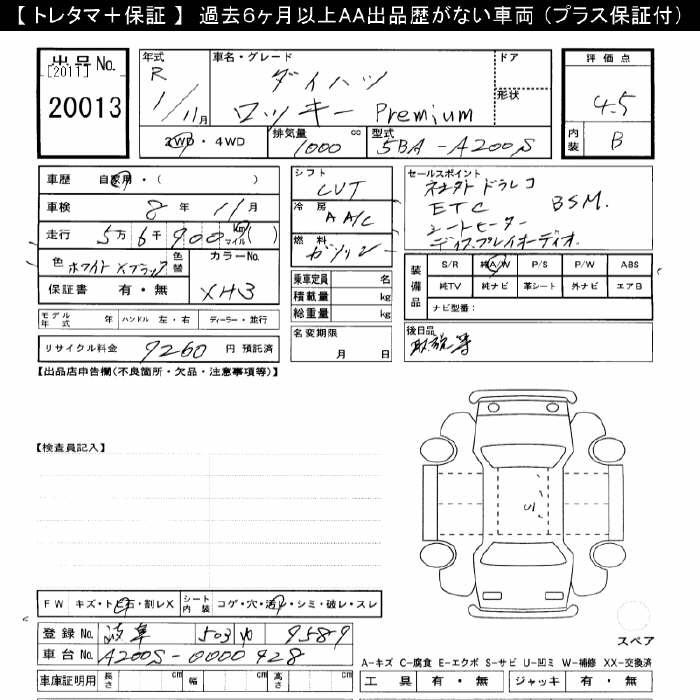 【 トレタマ＋保証 】 過去6ヶ月以上AA出品歴がない車両 （プラス保証付）
出品No.
[2011]
20013
年式
R
1/11月
車名・グレード
ダイハツ
ロッキー Premium
ドア
形状
2WD・4WD
排気量
1000
cc
型式
5BA-A200S
評価点
4.5
内装
B
車歴
自家用・( )
車検
8年11月
走行
5万6千900
km
マイル
( )
色
ホワイト×ブラック
色替
カラーNo.
XH3
保証書
有・無
シフト
CVT
冷房
AA/C
燃料
ガソリン
乗車定員 名
積載量 kg
総重量 kg
名変期限
月 日
セールスポイント
ドラレコ
ETC BSM.
シートヒーター
ディスプレイオーディオ.
装備品
S/R 純A/W P/S P/W ABS
純TV 純ナビ 革シート 外ナビ エアB
ナビ型番：
後日品
取説等
モデル年式 年 ハンドル 左・右 ディーラー・並行
リサイクル料金 9260 円 預託済
【出品店申告欄(不良箇所・欠品・注意事項等)】
【検査員記入】
FW キズ・トビ石・割レX シート内装 コゲ・穴・汚レ・シミ・破レ・スレ
登録No. 岐阜 503 ゆ 9589
車台No. A200S-0000428
車庫証明用 長さ cm 幅 cm 高さ cm
スペア
A-キズ C-腐食 E-エクボ S-サビ U-凹ミ W-補修 XX-交換済
工具 有・無 ジャッキ 有・無